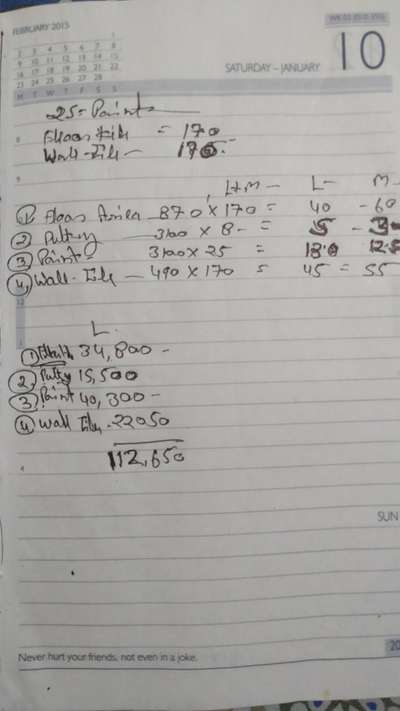 FEBRUARY 2015
1
2 3 4 5 6 7 8
9 10 11 12 13 14 15
16 17 18 19 20 21 22
23 24 25 26 27 28
M T W T F S S
SATURDAY – JANUARY
10
25= Paint
Floor tile = 170
Wall-Tile - 170
L+M - L - M -
① Floor Area - 870 x 170 = 40 - 60
② Putty - 3100 x 8 - = 5 - 3
③ Paint - 3100 x 25 = 13.0 12.
④ Wall-Tile - 490 x 170 = 45 = 55
L.
① 34,800 -
② Putty 15,500
③ Paint 40,300 -
④ Wall Tiles -22050
112,650
SUN
Never hurt your friends, not even in a joke.